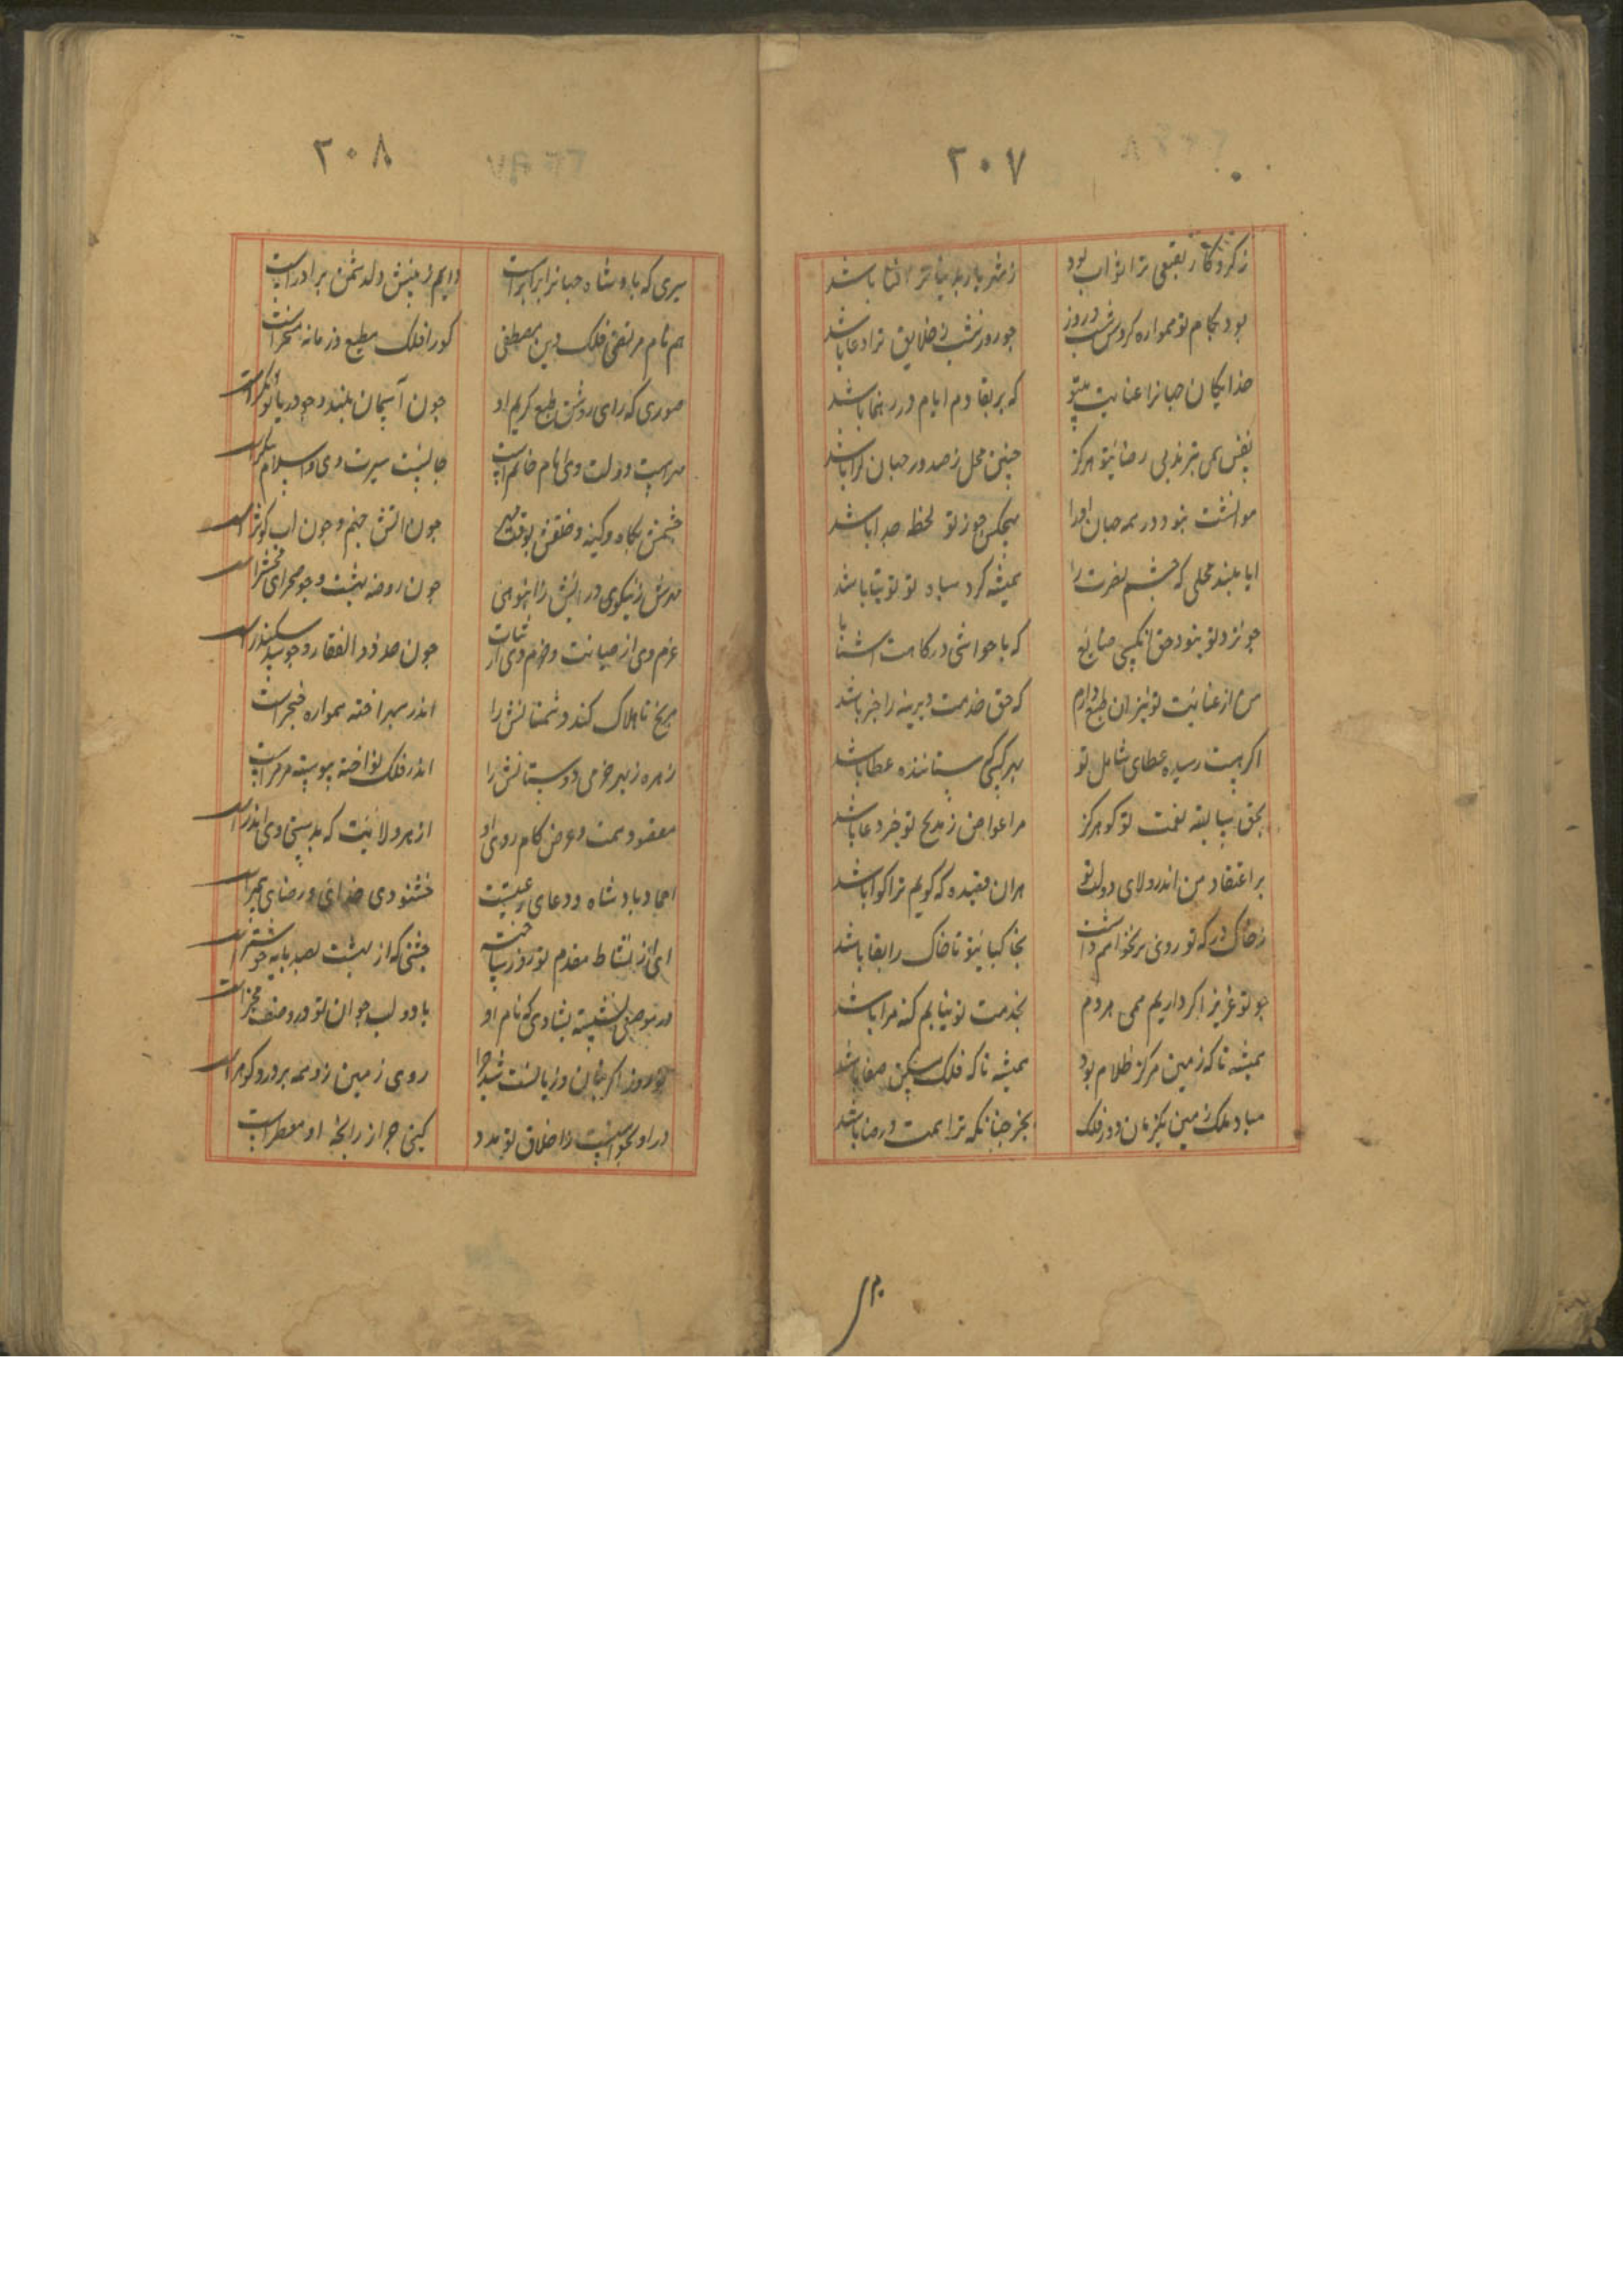 ۲۰۷
ز کردکار بعقبی ترا ثواب بود ز شهریار بدنیا ترا ثنا باشد
بود بکام تو همواره کردش شب و روز چو روز و شب ز خلایق ترا دعا باشد
خدایکان جهانرا عنایت بتو که بر بقا دم ایام و رهنما باشد
نفس همی نزند بی رضای تو هرکز چنین محل ز صدور جهان کرا باشد
موانست نبود در همه جهان او را بهیچکس چو ز تو لحظه جدا باشد
ایا بلند محلی که چشم نصرت را همیشه کرد سپاه تو توتیا باشد
چو نزد تو نبود حق هیچکسی ضایع که با حواشی درکاهت اشنا باشد
من از عنایت تو نیز ان طمع دارم که حق خدمت دیرینه را جزا باشد
اکر هست رسیده عطای شامل تو بهر کسی که ستاننده عطا باشد
بحق سابقه نعمت تو کو هرکز مرا عوض ز مدیح تو جز دعا باشد
بر اعتقاد من اندر ولای دولت تو هران قصیده که کویم ترا کوا باشد
ز خاک درکه تو روی بر نخواهم داشت بخاکپای تو تا خاک را بقا باشد
چو تو عزیز اکر داریم همی هر دم بخدمت تو نیایم کنه مرا باشد
همیشه تا که زمین مرکز ظلام بود همیشه تا که فلک مسکن صفا باشد
مباد ملک زمین یکزمان و دور فلک بجز چنانکه ترا همت و رضا باشد
۲۰۸
میری که پادشاه جهانرا برابر است دایم ز بینش دل دشمن بر اذر است
هم نام مرتضی فلک دین مصطفی کورا فلک مطیع و زمانه مسخر است
صدری که رای روشن و طبع کریم او چون آسمان بلند و چو دریا توانکر است
مهر است دولت وی و نام خاتم است جانست سیرت وی و اسلام پیکر است
خشمش بکاه کینه و خلقش بوقت مهر چون اتش جهنم و چون اب کوثر است
صدرش ز نیکوی درایش ز انبوهی چون روضه بهشت و چو صحرای محشر است
عزم وی از صیانت و حزم وی از ثبات چون حد ذو الفقار و چو سد سکندر است
مریخ تا هلاک کند دشمنانش را اندر سپهر اخته همواره خنجر است
زهره ز بهر خرمی دوستانش را اندر فلک نواخته پیوسته مزمر است
مقصود همت و غرض کام روی او از هر ولایت که بدستی وی اندر است
احماد پادشاه و دعای رعیت خشنودی خدای و رضای پیمبر است
ای از نشاط مقدم تو روز ساخته جشنی که از بهشت بصد پایه خوشتر است
در نوحه نشسته بشادی که نام او با دولت جوان تو در وصف مخبر است
نوروز اکر نشان وزیانست شد چرا روی زمین ز و همه پر در و کوهر است
در او بخواسست ز اخلاق تو مدد کیتی چرا ز رایحه او معطر است